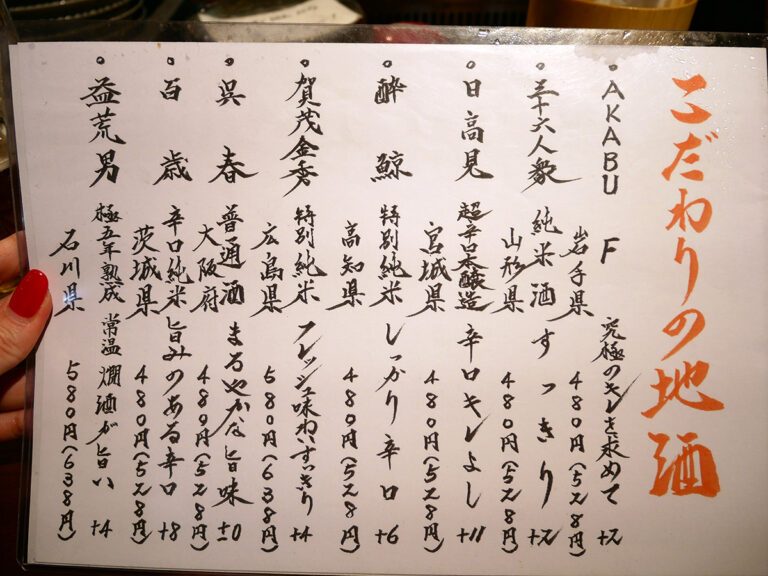 こだわりの地酒
・AKABU F 究極のキレを求めて +2
岩手県 480円(528円)
・三十六人衆 純米酒 すっきり +2
山形県 480円(528円)
・日高見 超辛口本醸造 辛口キレよし +11
宮城県 480円(528円)
・酔鯨 特別純米 しっかり辛口 +6
高知県 480円(528円)
・賀茂金秀 特別純米 フレッシュ味わいすっきり +4
広島県 580円(638円)
・呉春 普通酒 まろやかな旨味 ±0
大阪府 480円(528円)
・百歳 辛口純米 旨みのある辛口 +8
茨城県 480円(528円)
・益荒男 極五年熟成 常温燗酒が旨い +4
石川県 580円(638円)